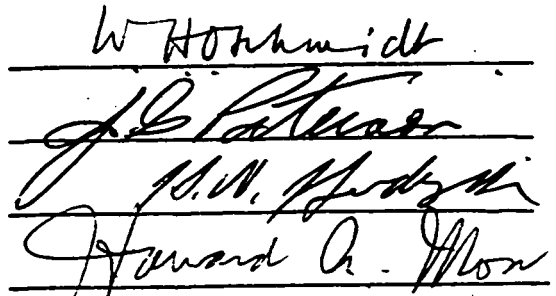 W H O Schmidt
J. G. Paterson
H. N.
Howard A. Moon